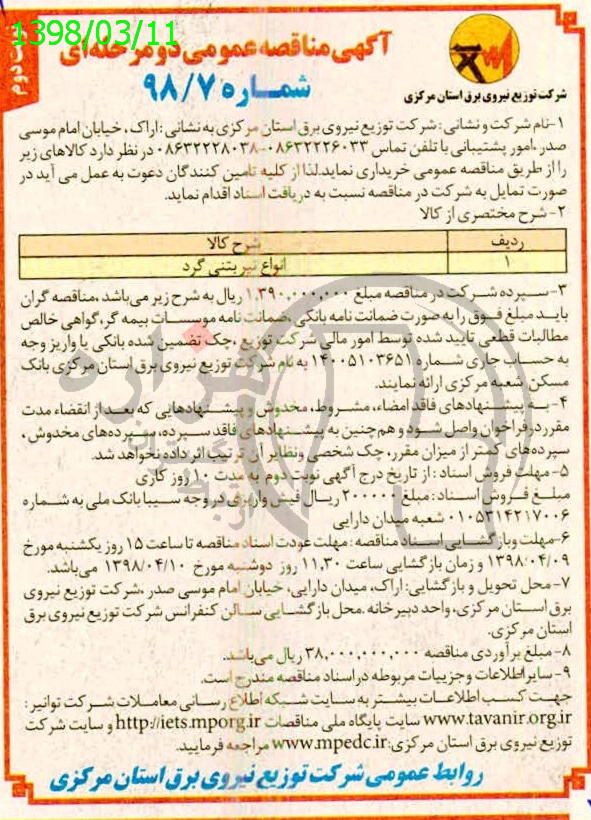 1398/03/11
نوبت دوم
آگهی مناقصه عمومی دو مرحله‌ای
شماره ۹۸/۷
شرکت توزیع نیروی برق استان مرکزی
۱-نام شرکت و نشانی: شرکت توزیع نیروی برق استان مرکزی به نشانی: اراک، خیابان امام موسی
صدر، امور پشتیبانی با تلفن تماس ۰۸۶۳۲۲۲۶۰۳۳-۰۸۶۳۲۲۲۸۰۳۸ در نظر دارد کالاهای زیر
را از طریق مناقصه عمومی خریداری نماید. لذا از کلیه تامین کنندگان دعوت به عمل می آید در
صورت تمایل به شرکت در مناقصه نسبت به دریافت اسناد اقدام نماید.
۲-شرح مختصری از کالا
ردیف شرح کالا
۱ انواع تیر بتنی گرد
۳-سپرده شرکت در مناقصه مبلغ ۱,۳۹۰,۰۰۰,۰۰۰ ریال به شرح زیر می‌باشد، مناقصه گران
باید مبلغ فوق را به صورت ضمانت نامه بانکی، ضمانت نامه موسسات بیمه گر، گواهی خالص
مطالبات قطعی تایید شده توسط امور مالی شرکت توزیع، چک تضمین شده بانکی یا واریز وجه
به حساب جاری شماره ۱۴۰۰۵۱۰۳۶۵۱ به نام شرکت توزیع نیروی برق استان مرکزی بانک
مسکن شعبه مرکزی ارائه نمایند.
۴-به پیشنهادهای فاقد امضاء، مشروط، مخدوش و پیشنهادهایی که بعد از انقضاء مدت
مقرر در فراخوان واصل شود و هم چنین به پیشنهادهای فاقد سپرده، سپرده‌های مخدوش،
سپرده‌های کمتر از میزان مقرر، چک شخصی و نظایر آن ترتیب اثر داده نخواهد شد.
۵-مهلت فروش اسناد: از تاریخ درج آگهی نوبت دوم به مدت ۱۰ روز کاری
مبلغ فروش اسناد: مبلغ ۲۰۰۰۰۰ ریال فیش واریزی در وجه سیبا بانک ملی به شماره
۰۱۰۵۳۱۴۲۱۷۰۰۶ شعبه میدان دارایی
۶-مهلت و بازگشایی اسناد مناقصه: مهلت عودت اسناد مناقصه تا ساعت ۱۵ روز یکشنبه مورخ
۱۳۹۸/۰۴/۰۹ و زمان بازگشایی ساعت ۱۱,۳۰ روز دوشنبه مورخ ۱۳۹۸/۰۴/۱۰ می‌باشد.
۷-محل تحویل و بازگشایی: اراک، میدان دارایی، خیابان امام موسی صدر، شرکت توزیع نیروی
برق استان مرکزی، واحد دبیرخانه. محل بازگشایی سالن کنفرانس شرکت توزیع نیروی برق
استان مرکزی.
۸-مبلغ برآوردی مناقصه ۳۸,۰۰۰,۰۰۰,۰۰۰ ریال می‌باشد.
۹-سایر اطلاعات و جزییات مربوطه در اسناد مناقصه مندرج است.
جهت کسب اطلاعات بیشتر به سایت شبکه اطلاع رسانی معاملات شرکت توانیر:
www.tavanir.org.ir سایت پایگاه ملی مناقصات http://iets.mporg.ir و سایت شرکت
توزیع نیروی برق استان مرکزی: www.mpedc.ir مراجعه فرمایید.
روابط عمومی شرکت توزیع نیروی برق استان مرکزی